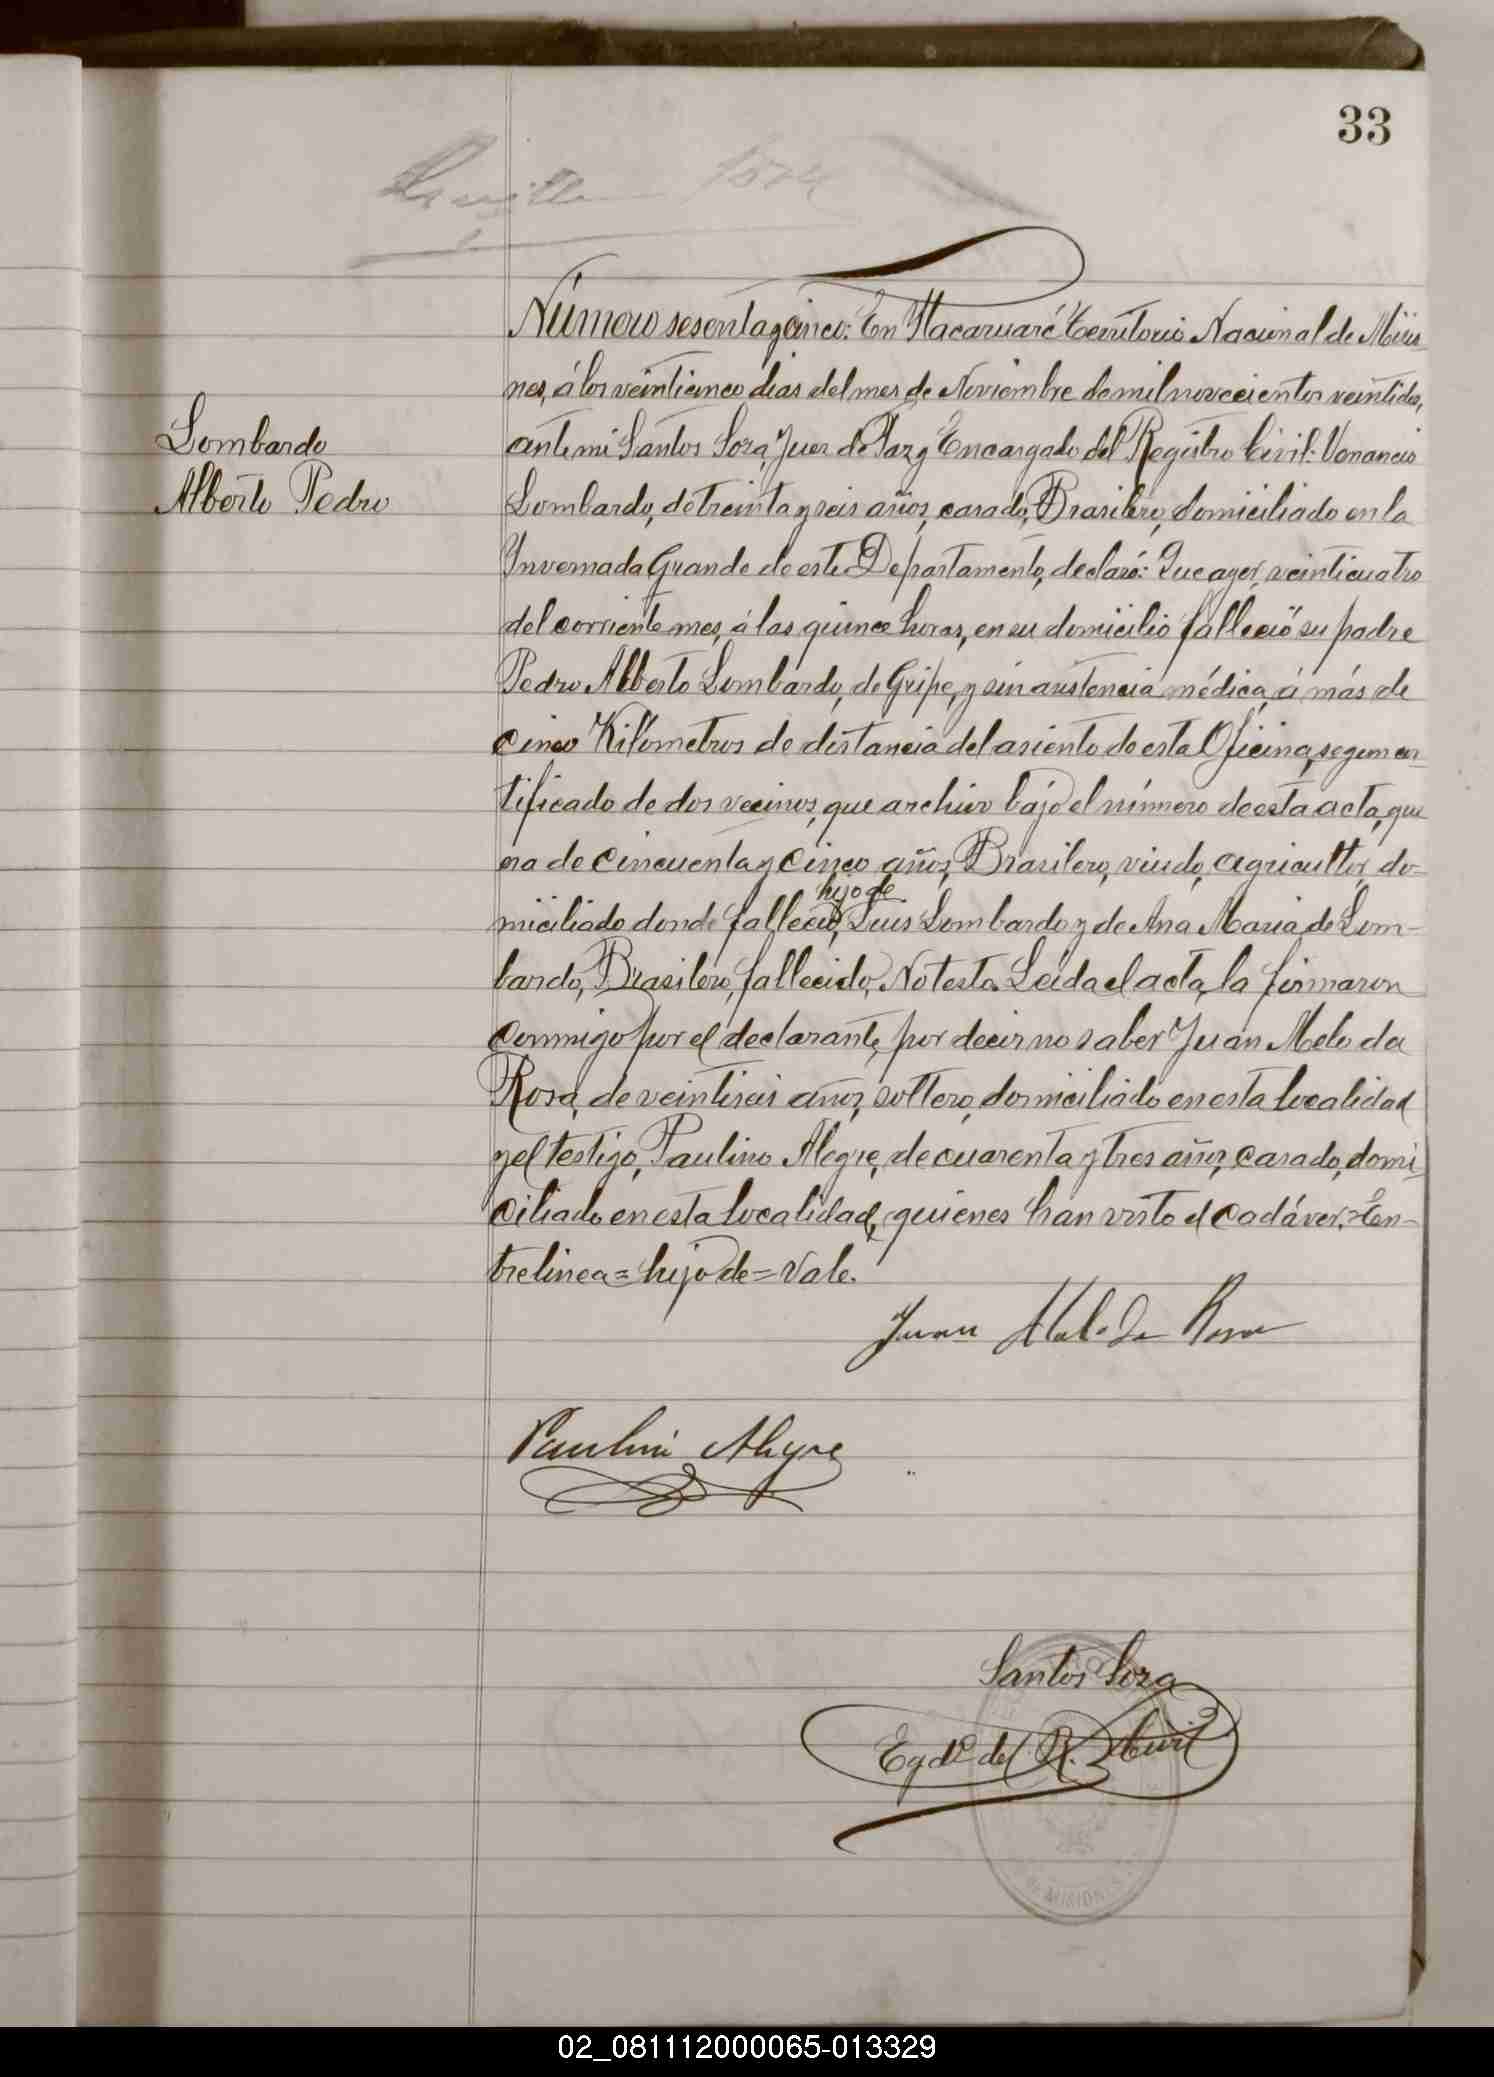 33
Número sesenta y cinco: En Itacaruaré Territorio Nacional de Misio-
nes, á los veinticinco dias del mes de Noviembre de mil novecientos veintidos,
Lombardo
Alberto Pedro
ante mi Santos Soza, Juez de Paz y Encargado del Registro Civil: Venancio
Lombardo, de treinta y seis años, casado, Brasilero, domiciliado en la
Invernada Grande de este Departamento, declaró: Que ayer, veinticuatro
del corriente mes, á las quince horas, en su domicilio falleció su padre
Pedro Alberto Lombardo, de Gripe, y sin asistencia médica, á más de
cinco Kilómetros de distancia del asiento de esta Oficina, segun cer-
tificado de dos vecinos, que archivo bajo el número de esta acta, que
era de cincuenta y cinco años, Brasilero, viudo, agricultor, do-
hijo de
miciliado donde falleció, Luis Lombardo y de Ana Maria de Lom-
bardo, Brasilero, fallecido, No testa. Leida el acta, la firmaron
conmigo por el declarante, por decir no saber Juan Melo da
Rosa, de veintiseis años, soltero, domiciliado en esta localidad
y el testigo, Paulino Alegre, de cuarenta y tres años, casado, domi-
ciliado en esta localidad, quienes han visto el cadáver.=En-
trelinea=hijo de=Vale.
Juan Melo da Rosa
Paulino Alegre
Santos Soza
Egdo. del R. Civil
MISIONES
02_081112000065-013329